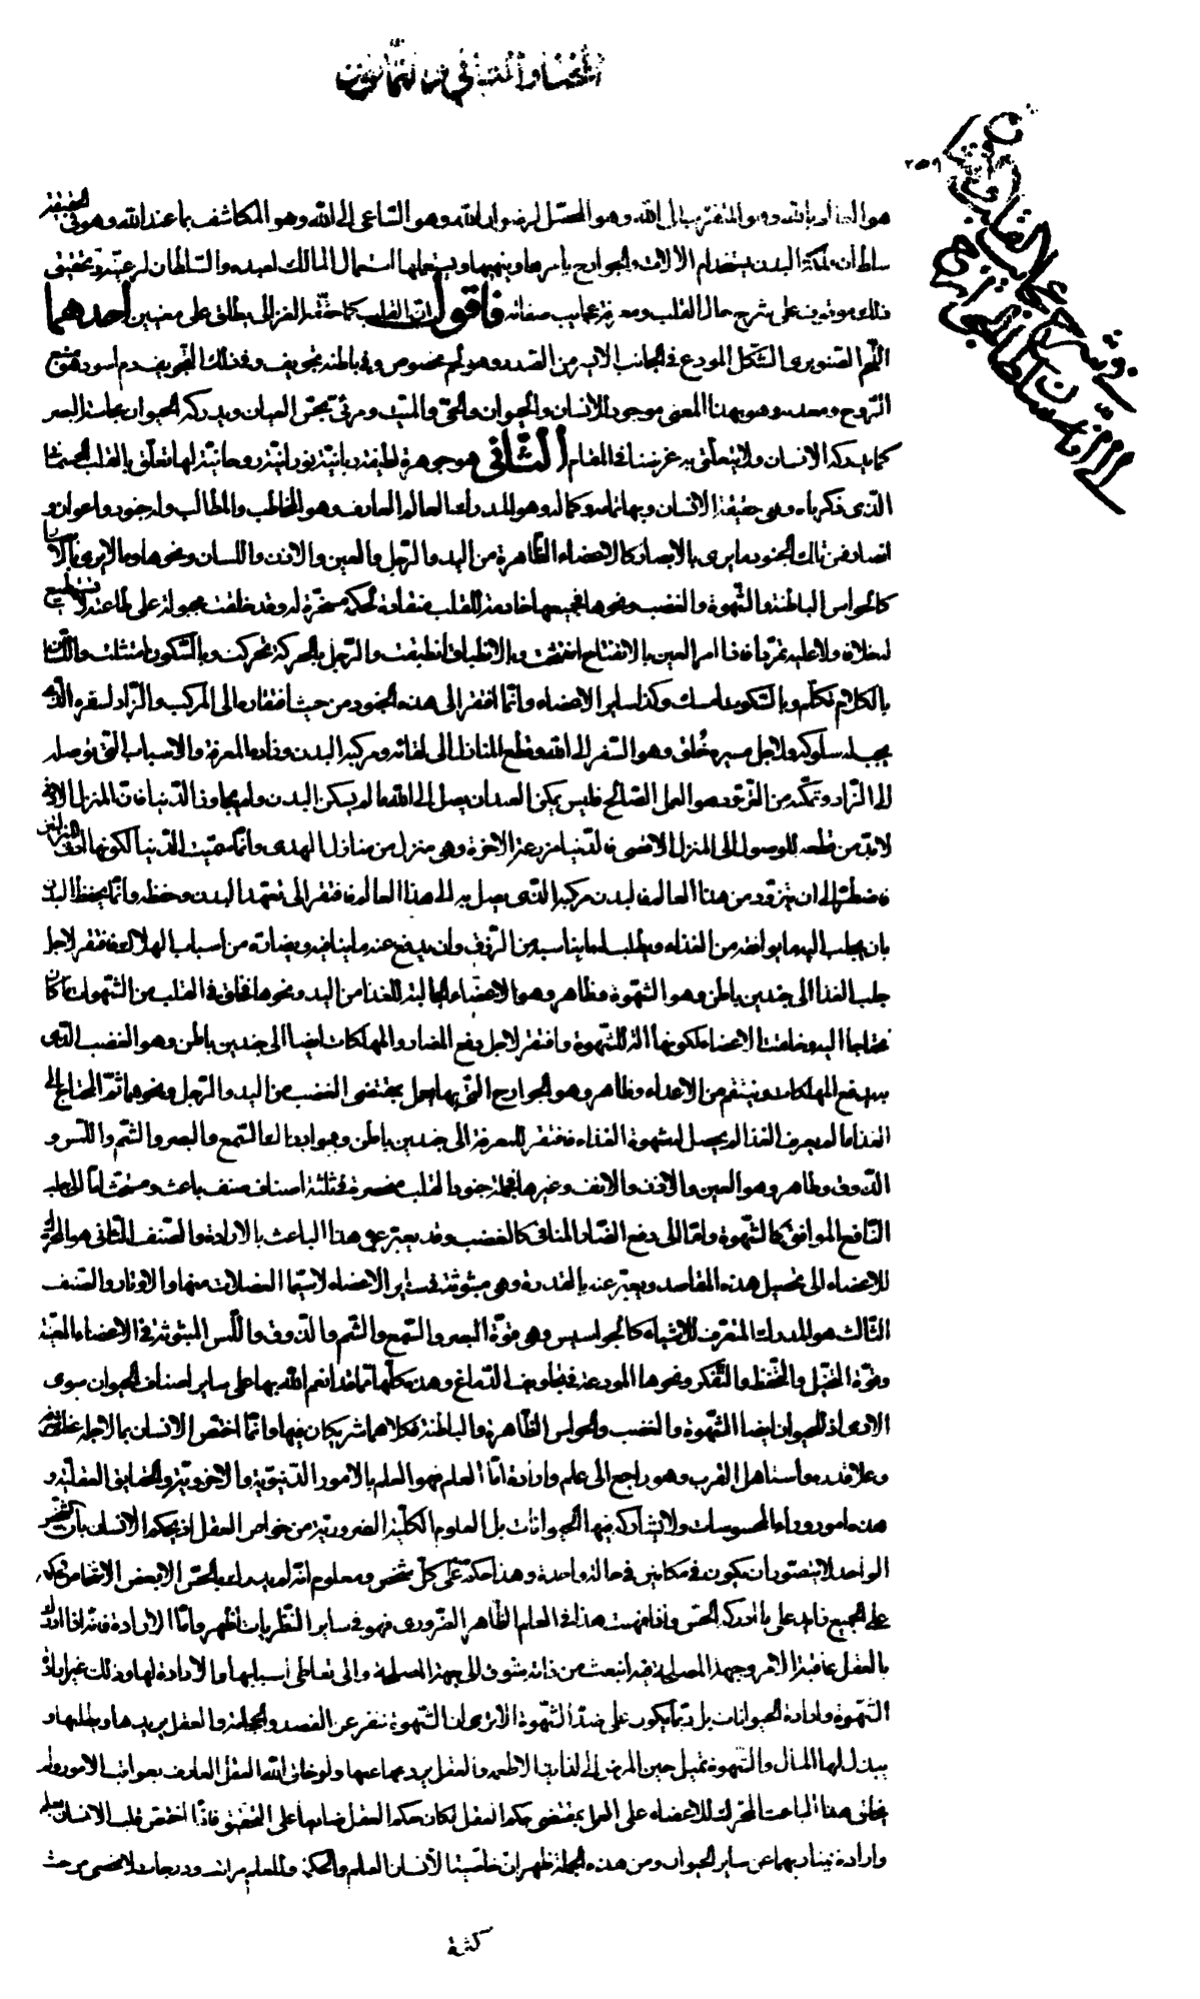 هو العالم بالله وهو المتقرب الى الله وهو المحصّل لرضوان الله وهو السّاعى الى الله وهو المكاشف بما عند الله وهو فى الحقيقة
سلطان مملكة البدن يستخدم الالات والجوارح يأمرها وينهيها ويستعملها استعمال المالك لعبده والسّلطان لرعيّته وتحقيق
ذلك موقوف على شرح حال القلب ومعرفة عجايب صفاته فاقول انّ القلب كما حقّقه الغزالى يطلق على معنيين احدهما
اللّحم الصّنوبرى الشّكل المودع فى الجانب الايسر من الصّدر وهو لحم مخصوص وفى باطنه تجويف وفى ذلك التّجويف دم اسود هو منبع
الرّوح ومعدنه وهو بهذا المعنى موجود للانسان والحيوان والحىّ والميّت ومرئىّ بحسّ العيان ويدركه الحيوان بحاسّة البصر
كما يدركه الانسان ولا يتعلّق به غرضنا فى المقام الثّانى هو جوهرة لطيفة ربانيّة نورانيّة روحانيّة لها تعلّق بالقلب الجسمانى
الّذى ذكرناه وهى حقيقة الانسان وبها تمامه وكماله وهو المدرك العالم العارف وهو المخاطب والمطالب وله جنود واعوان و
انصار فمن تلك الجنود ما يرى بالابصار كالاعضاء الظّاهرة من اليد والرّجل والعين والاذن واللسان ونحوها وما لا يرى بالابصار
كالحواس الباطنة والشّهوة والغضب ونحوها فجميعها خادمة للقلب منقادة لحكمه مسخّرة له وقد خلقت مجبولة على طاعته لا تستطيع
له خلافا ولا عليه تمرّدا فاذا امر العين بالانفتاح انفتحت وبالانطباق انطبقت والرّجل بالحركة تحركت وبالسّكون امتثلت واللّسان
بالكلام تكلّم وبالسّكوت امسك وكذا ساير الاعضاء وانّما افتقر الى هذه الجنود من حيث افتقاره الى المركب والزّاد لسفره الّذى
يجب له سلوكه ولاجل مسيره خُلق وهو السّفر الى الله وقطع المنازل الى لقائه ومركبه البدن وزاده المعرفة والاسباب التى توصله
الى الزّاد وتمكّنه من التّزود هو العمل الصّالح فليس يمكن العبد ان يصل الى الله ما لم يسكن البدن ولم يجاوز الدّنيا فانّ المنزل الادنى
لا بدّ من قطعه للوصول الى المنزل الاقصى فالدّنيا مزرعة الاخرة وهى منزل من منازل الهدى وانّما سمّيت الدّنيا لكونها ادنى المنزلتين
فاضطرّ الى ان يتزوّد من هذا العالم فالبدن مركبه الّذى يصل به الى هذا العالم فافتقر الى تعهّد البدن وحفظه وانّما يحفظ البدن
بان يجلب اليه ما يوافقه من الغذاء ويطلب له ما يناسبه من الرّزق وان يدفع عنه ما ينافيه ويضادّه من اسباب الهلاك فافتقر لاجل
جلب الغذا الى جندين باطن وهو الشّهوة وظاهر وهو الاعضاء الجالبة للغذا من اليد ونحوها فخلق فى القلب من الشّهوات ما كان
محتاجا اليه وخلقت الاعضاء لكونها الة للشّهوة وافتقر لاجل دفع المضار والمهلكات ايضا الى جندين باطن وهو الغضب الّذى
به يدفع المهلكات وينتقم من الاعداء وظاهر وهو الجوارح الّتى بها يعمل بمقتضى الغضب من اليد والرّجل ونحوهما ثمّ المحتاج الى
الغذاء ما لم يعرف الغذا لم يحصل له شهوة الغذاء فافتقر للمعرفة الى جندين باطن وهو ادراك السّمع والبصر والشّم واللّمس و
الذّوق وظاهر وهو العين والاذن والانف وغيرها فجملة جنود القلب منحصرة فى ثلثة اصناف صنف باعث ومستحثّ امّا الى جلب
النّافع الموافق كالشّهوة وامّا الى دفع الضّار المنافى كالغضب وقد يعبّر عن هذا الباعث بالارادة والصّنف الثّانى هو المحرّك
للاعضاء الى تحصيل هذه المقاصد ويعبّر عنه بالقدرة وهى مبثوثة فى ساير الاعضاء لا سيّما العضلات منها والاوتار والصّنف
الثّالث هو المدرك المتعرّف للاشياء كالجواسيس وهى قوّة البصر والسّمع والشّم والذّوق واللّمس المبثوثة فى الاعضاء المعيّنة
وقوّة التخيّل والتّحفظ والتّفكر ونحوها المودعة فى تجاويف الدّماغ وهذه كلّها ممّا قد انعم الله بها على ساير اصناف الحيوان سوى
الادمى اذ للحيوان ايضا الشّهوة والغضب والحواس الظّاهرة والباطنة فكلاهما شريكان فيها وانّما اختصّ الانسان بما لاجله عظم شرفه
وعلا قدره واستاهل القرب وهو راجع الى علم وارادة امّا العلم فهو العلم بالامور الدّنيويّة والاخرويّة والحقايق العقليّة و
هذه امور وراء المحسوسات ولا يشاركه فيها الحيوانات بل العلوم الكلّية الضرورّية من خواص العقل اذ يحكم الانسان بانّ الشّخص
الواحد لا يتصوّر ان يكون فى مكانين فى حالة واحدة وهذا حكم على كلّ شخص ومعلوم انّه لم يدرك بالحسّ الا بعض الاشخاص فحكمه
على الجميع زايد على ما ادركه الحسّ واذا فهمت هذا فى العلم الظّاهر الضّرورى فهو فى ساير النّظريات اظهر وامّا الارادة فانّه اذا ادرك
بالعقل عاقبة الامر وجهة المصلحة فيه انبعث من ذاته شوق الى جهة المصلحة والى تعاطى اسبابها والارادة لها وذلك غير ارادة
الشّهوة وارادة الحيوانات بل ربّما يكون على ضدّ الشّهوة الا ترى ان الشّهوة تنفر عن الفصد والحجامة والعقل يريدها ويطلبها و
يبذل لها المال والشّهوة تميل حين المرض الى لذايذ الاطعمة والعقل يردعها عنها ولو خلق الله العقل العارف بعواقب الامور ولم
يخلق هذا الباعث المحرّك للاعضاء على العمل بمقتضى حكم العقل لكان حكم العقل ضايعا على التحقيق فاذا اختصّ قلب الانسان بعلم
وارادة ينفك بهما عن ساير الحيوان ومن هذه الجملة ظهر ان خاصّية الانسان العلم والحكمة وللعلم مراتب ودرجات لا تحصى من حيث
كثرة